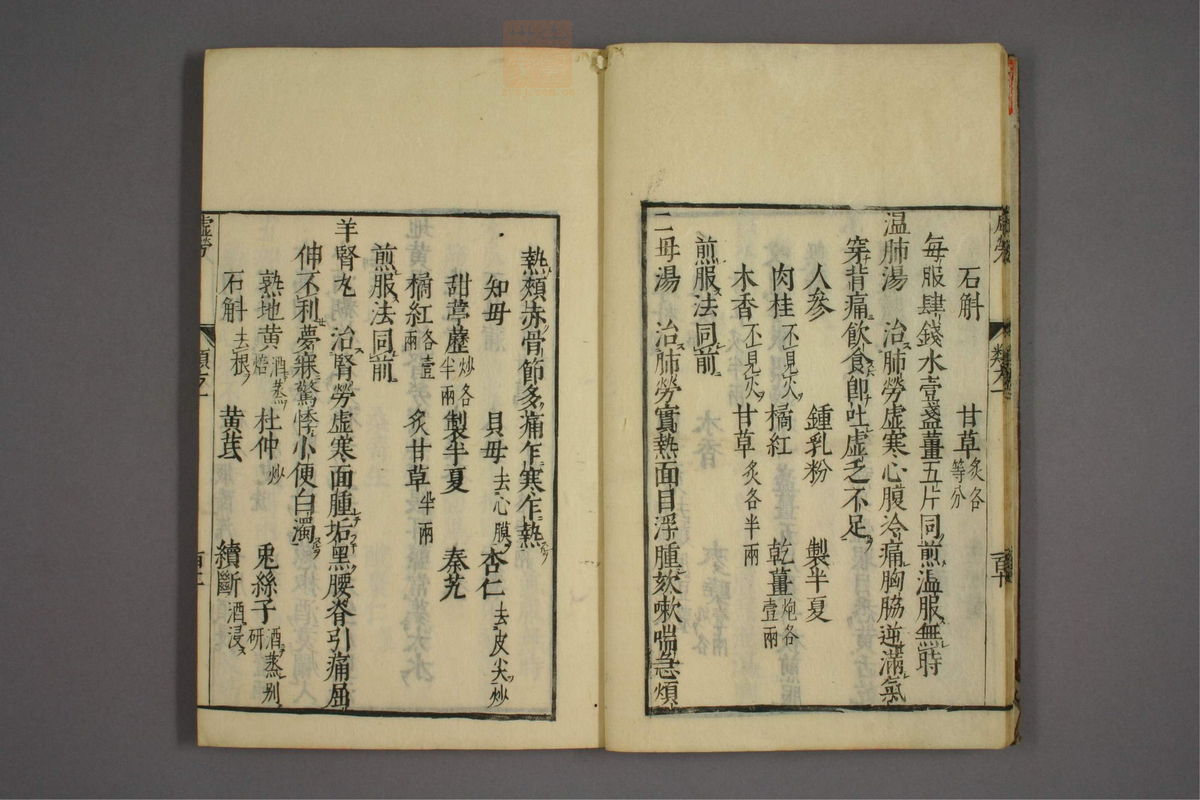 石斛 甘草炙各等分
每服肆錢水壹盞薑五片同煎溫服無時
溫肺湯 治肺勞虛寒心腹冷痛胸脇逆滿氣
穿背痛飲食卽吐虛乏不足
人參 鍾乳粉 製半夏
肉桂不見火 橘紅 乾薑炮各壹兩
木香不見火 甘草炙各半兩
煎服法同前
二母湯 治肺勞實熱面目浮腫欬嗽喘急煩
熱頰赤骨節多痛乍寒乍熱
知母 貝母去心膜 杏仁去皮尖炒
甜葶藶炒各半兩 製半夏 秦艽
橘紅各壹兩 炙甘草半兩
煎服法同前
羊腎丸 治腎勞虛寒面腫垢黑腰脊引痛屈
伸不利夢寐驚悸小便白濁
熟地黃酒蒸焙 杜仲炒 兎絲子酒蒸別研
石斛去根 黃芪 續斷酒浸
虛勞